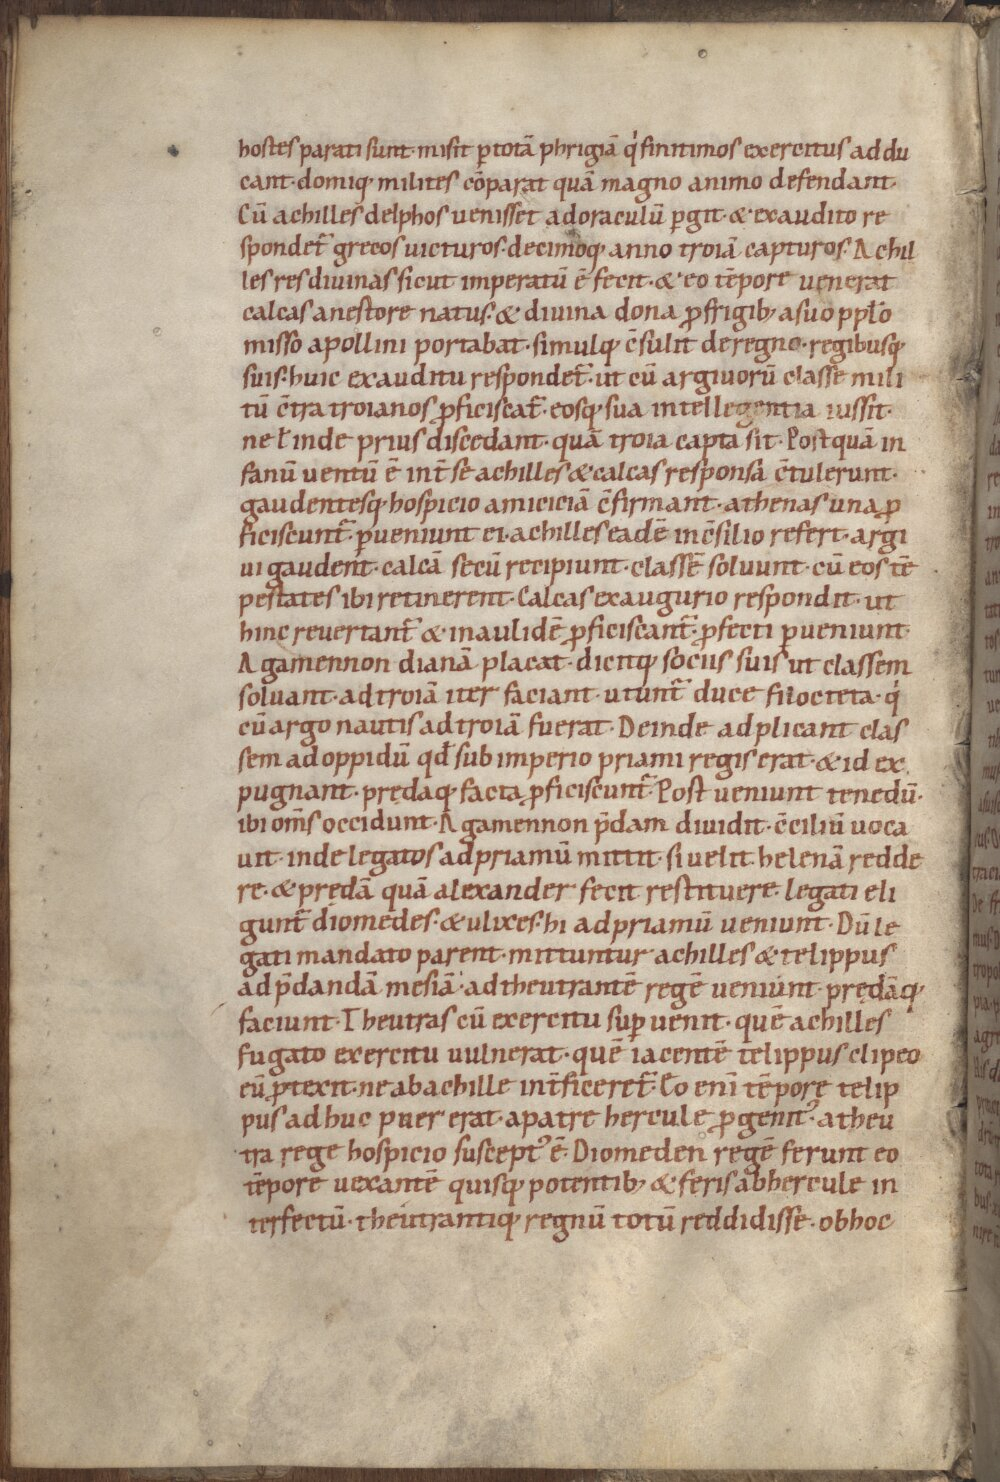 hostes parati sunt· misit ꝑ totā phrigiā q' finitimos exercitus addu
cant· domiq; milites cōparat quā magno animo defendant·
Cū achilles delphos uenisset ad oraculū ꝑgit· & exaudito re
spondet᷑ grecos uicturos· decimoq; anno troiā capturos· Achil
les res diuinas sicut imperatū ē fecit· & eo tēpore uenerat
calcas a nestore natus· & diuina dona ꝓ frigib; a suo pplo
misso apollini portabat· simulq; c̄sulit de regno· regibusq;
suis· huic exauditu respondet᷑· ut cū argiuorū classe mili
tū c̄tra troianos ꝓficiscat᷑· eosq; sua intellegentia iussit·
ne ł inde prius discedant· quā troia capta sit· Postquā in
fanū uentū ē int̄ se achilles & calcas responsa c̄tulerunt·
gaudentesq; hospicio amiciciā c̄firmant· athenas una ꝓ
ficiscunt᷑· ꝑueniunt ei· achilles eadē in c̄silio refert· argi
ui gaudent· calcā secū recipiunt· classē soluunt· cū eos tē
pestates ibi retinerent· Calcas ex augurio respondit· ut
hinc reuertant᷑ & in aulidē ꝓficiscant᷑· ꝓfecti ꝑueniunt·
Agamennon dianā placat· dicitq; sociis suis ut classem
soluant· ad troiā iter faciant· utunt᷑ duce filocteta· q'
cū argonautis ad troiā fuerat· Deinde adplicant clas
sem ad oppidū qđ sub imperio priami regis erat· & id ex
pugnant· prędaq; facta ꝓficiscunt᷑· Post ueniunt tenedū·
ibi om̄s occidunt· Agamennon p̄dam diuidit· c̄ciliū uoca
uit· inde legatos ad priamū mittit· si uelit helenā redde
re· & prędā quā alexander fecit restituere· legati eli
gunt᷑ diomedes· & ulixes· hi ad priamū ueniunt· Dū le
gati mandato parent· mittuntur achilles & telippus
ad p̄dandā mesiā· ad theutrantē regē ueniunt· prędāq;
faciunt· Theutras cū exercitu suꝑuenit· quē achilles
fugato exercitu uulnerat· quē iacentē telippus clipeo
eū ꝓtexit· ne ab achille int̄ficeret᷑· Eo enī tēpore telip
pus adhuc puer erat· a patre hercule ꝓgenit᷒· a theu
tra rege hospicio suscept᷒ ē· Diomeden regē ferunt eo
tēpore uexantē quisq; potentib; & feris ab hercule in
terfectū· theutrantiq; regnū totū reddidisse· ob hoc